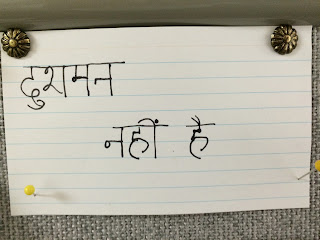 दुशमन
नहीं है